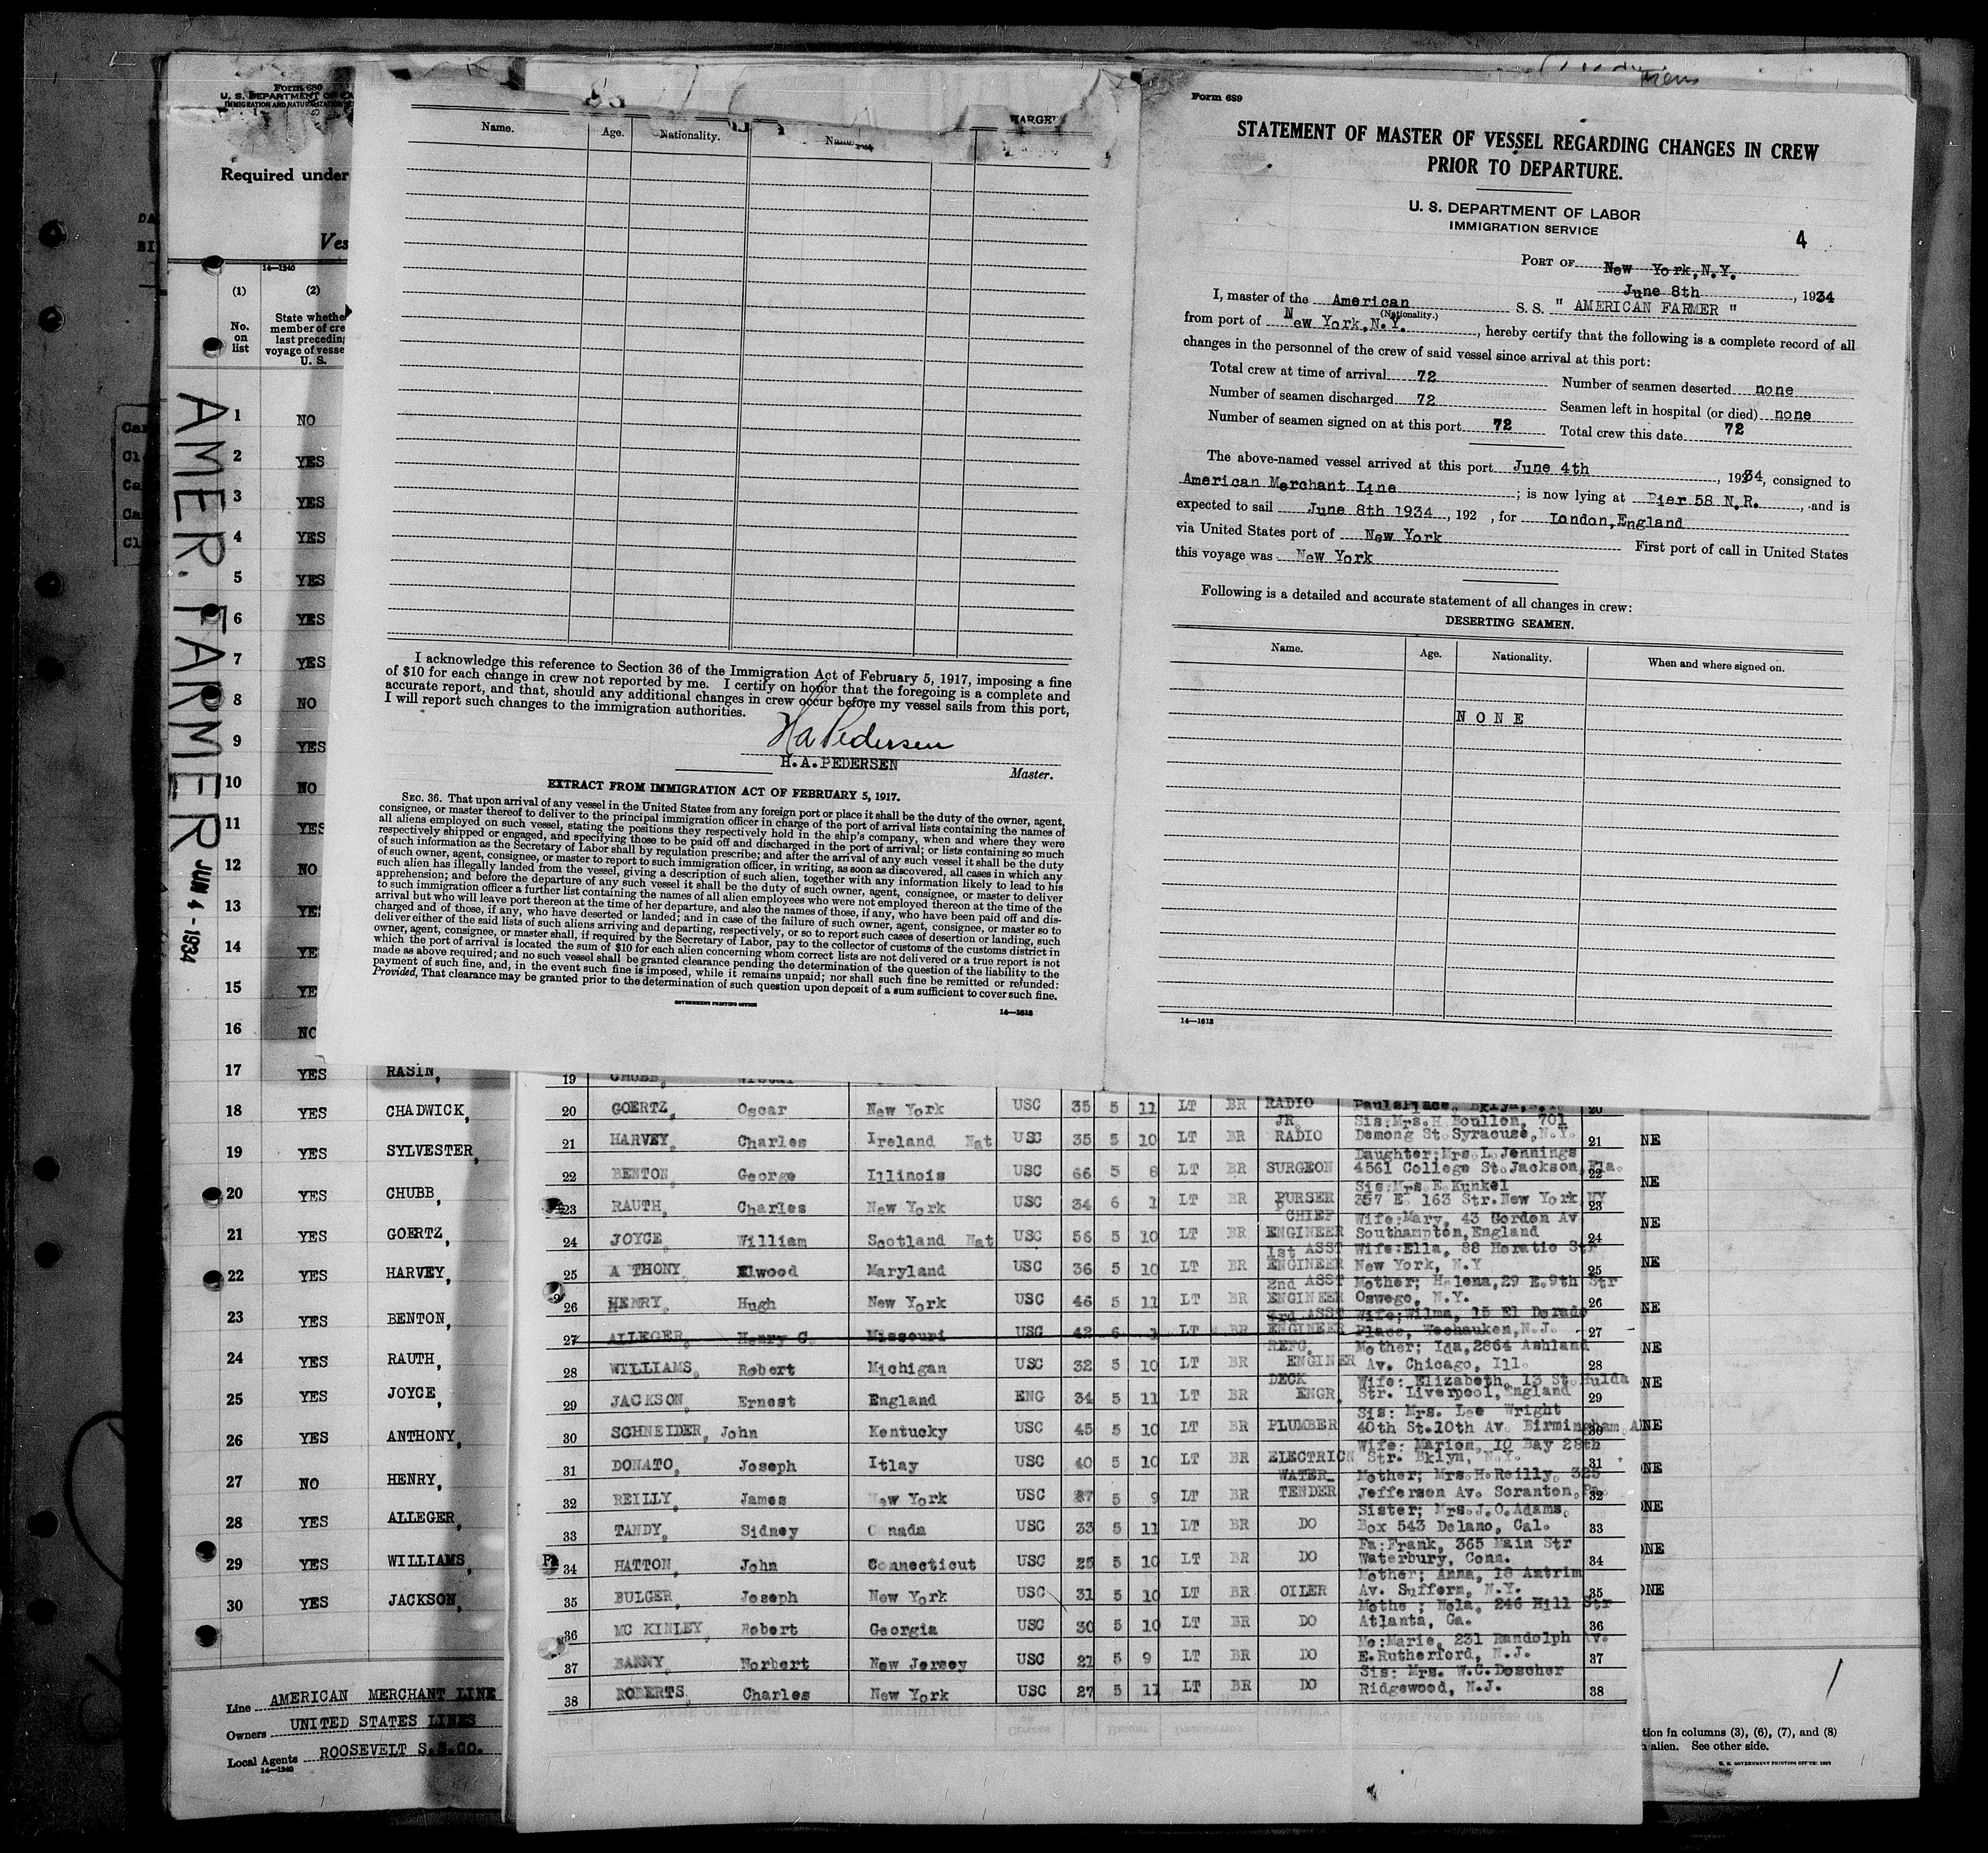 Form 689
STATEMENT OF MASTER OF VESSEL REGARDING CHANGES IN CREW
PRIOR TO DEPARTURE.
U. S. DEPARTMENT OF LABOR
IMMIGRATION SERVICE
4
PORT OF New York, N.Y.
June 8th, 1934
I, master of the American S. S. " AMERICAN FARMER "
(Nationality.)
from port of New York, N.Y., hereby certify that the following is a complete record of all
changes in the personnel of the crew of said vessel since arrival at this port:
Total crew at time of arrival 72 Number of seamen deserted none
Number of seamen discharged 72 Seamen left in hospital (or died) none
Number of seamen signed on at this port 72 Total crew this date 72
The above-named vessel arrived at this port June 4th, 1934, consigned to
American Merchant Line; is now lying at Pier 58 N.R., and is
expected to sail June 8th 1934, 192 , for London, England
via United States port of New York First port of call in United States
this voyage was New York
Following is a detailed and accurate statement of all changes in crew:
DESERTING SEAMEN.
Name. Age. Nationality. When and where signed on.
NONE
14—1613
Name. Age. Nationality. Name
I acknowledge this reference to Section 36 of the Immigration Act of February 5, 1917, imposing a fine
of $10 for each change in crew not reported by me. I certify on honor that the foregoing is a complete and
accurate report, and that, should any additional changes in crew occur before my vessel sails from this port,
I will report such changes to the immigration authorities.
H a Pedersen
H.A.PEDERSEN
Master.
EXTRACT FROM IMMIGRATION ACT OF FEBRUARY 5, 1917.
SEC. 36. That upon arrival of any vessel in the United States from any foreign port or place it shall be the duty of the owner, agent,
consignee, or master thereof to deliver to the principal immigration officer in charge of the port of arrival lists containing the names of
all aliens employed on such vessel, stating the positions they respectively hold in the ship's company, when and where they were
respectively shipped or engaged, and specifying those to be paid off and discharged in the port of arrival; or lists containing so much
of such information as the Secretary of Labor shall by regulation prescribe; and after the arrival of any such vessel it shall be the duty
of such owner, agent, consignee, or master to report to such immigration officer, in writing, as soon as discovered, all cases in which any
such alien has illegally landed from the vessel, giving a description of such alien, together with any information likely to lead to his
apprehension; and before the departure of any such vessel it shall be the duty of such owner, agent, consignee, or master to deliver
to such immigration officer a further list containing the names of all alien employees who were not employed thereon at the time of the
arrival but who will leave port thereon at the time of her departure, and also the names of those, if any, who have been paid off and dis-
charged and of those, if any, who have deserted or landed; and in case of the failure of such owner, agent, consignee, or master so to
deliver either of the said lists of such aliens arriving and departing, respectively, or so to report such cases of desertion or landing, such
owner, agent, consignee, or master shall, if required by the Secretary of Labor, pay to the collector of customs of the customs district in
which the port of arrival is located the sum of $10 for each alien concerning whom correct lists are not delivered or a true report is not
made as above required; and no such vessel shall be granted clearance pending the determination of the question of the liability to the
payment of such fine, and, in the event such fine is imposed, while it remains unpaid; nor shall such fine be remitted or refunded:
Provided, That clearance may be granted prior to the determination of such question upon deposit of a sum sufficient to cover such fine.
GOVERNMENT PRINTING OFFICE
14—1613
Form 680
U. S. DEPARTMENT OF
IMMIGRATION AND NATURALIZATION
Required under
Ves
14—1240
(1) (2)
No. on list
State whether
member of cre
last preceding
voyage of vesse
U. S.
AMER. FARMER JUN 4 - 1934
1 NO
2 YES
3 YES
4 YES
5 YES
6 YES
7 YES
8 NO
9 YES
10 NO
11 YES
12 NO
13 YES
14 YE
15 YE
16 NO
17 YES RASIN,
18 YES CHADWICK,
19 YES SYLVESTER,
20 YES CHUBB,
21 YES GOERTZ,
22 YES HARVEY,
23 YES BENTON,
24 YES RAUTH,
25 YES JOYCE,
26 YES ANTHONY,
27 NO HENRY,
28 YES ALLEGER,
29 YES WILLIAMS,
30 YES JACKSON,
Line AMERICAN MERCHANT LINE
Owners UNITED STATES LINES
Local Agents ROOSEVELT S.S.CO.
14—1240
19 CHUBB,
20 GOERTZ, Oscar New York USC 35 5 11 LT BR RADIO Pauls Place, Bklyn, 20
21 HARVEY, Charles Ireland Nat USC 35 5 10 LT BR JR. RADIO Sis: Mrs. H Boullon, 701 Demong St. Syracuse, N.Y. 21
22 BENTON, George Illinois USC 66 5 8 LT BR SURGEON Daughter; Mrs. L. Jennings 4561 College St. Jackson, Fla. 22
23 RAUTH, Charles New York USC 34 6 1 LT BR PURSER Sis: Mrs. E. Kunkel 357 E. 163 Str. New York NY 23
24 JOYCE, William Scotland Nat USC 56 5 10 LT BR CHIEF ENGINEER Wife: Mary, 43 Gordon Av Southampton, England 24
25 A THONY, Elwood Maryland USC 36 5 10 LT BR 1st ASST ENGINEER Wife: Ella, 88 Horatio Str New York, N.Y 25
26 HENRY, Hugh New York USC 46 5 11 LT BR 2nd ASST ENGINEER Mother; Helena, 29 E. 9th Str Oswego, N.Y. 26
27 ALLEGER, Henry C. Missouri USC 42 6 1 LT BR 3rd ASST ENGINEER Wife; Wilma, 15 El Dorado Place, Weehauken, N.J. 27
28 WILLIAMS, Robert Michigan USC 32 5 10 LT BR REFG. ENGINER Mother; Ida, 2864 Ashland Av. Chicago, Ill. 28
29 JACKSON, Ernest England ENG 34 5 11 LT BR DECK ENGR. Wife: Elizabeth, 13 St. Hulda Str. Liverpool, England 29
30 SCHNEIDER, John Kentucky USC 45 5 10 LT BR PLUMBER Sis: Mrs. Lee Wright 40th St. 10th Av. Birmingham, A 30
31 DONATO, Joseph Itlay USC 40 5 10 LT BR ELECTRICN Wife: Marion, 10 Bay 28th Str. Bklyn, N.Y. 31
32 REILLY, James New York USC 37 5 9 LT BR WATER- TENDER Mother; Mrs. H. Reilly, 325 Jefferson Av. Scranton, Pa. 32
33 TANDY, Sidney C nada USC 33 5 11 LT BR DO Sister; Mrs. J.O. Adams, Box 543 Delano, Cal. 33
34 HATTON, John Connecticut USC 25 5 10 LT BR DO Fa: Frank, 365 Main Str Waterbury, Conn. 34
35 BULGER, Joseph New York USC 31 5 10 LT BR OILER Mother; Anna, 18 Antrim Av. Suffern, N.Y. 35
36 MC KINLEY, Robert Georgia USC 30 5 10 LT BR DO Mothe ; Nola, 246 Hill Str Atlanta, Ga. 36
37 BARNY, Norbert New Jersey USC 21 5 9 LT BR DO Mo: Marie, 231 Randolph Av. E. Rutherford, N.J. 37
38 ROBERTS, Charles New York USC 27 5 11 LT BR DO Sis: Mrs. W.C. Doscher Ridgewood, N.J. 38
tion in columns (3), (6), (7), and (8)
alien. See other side.